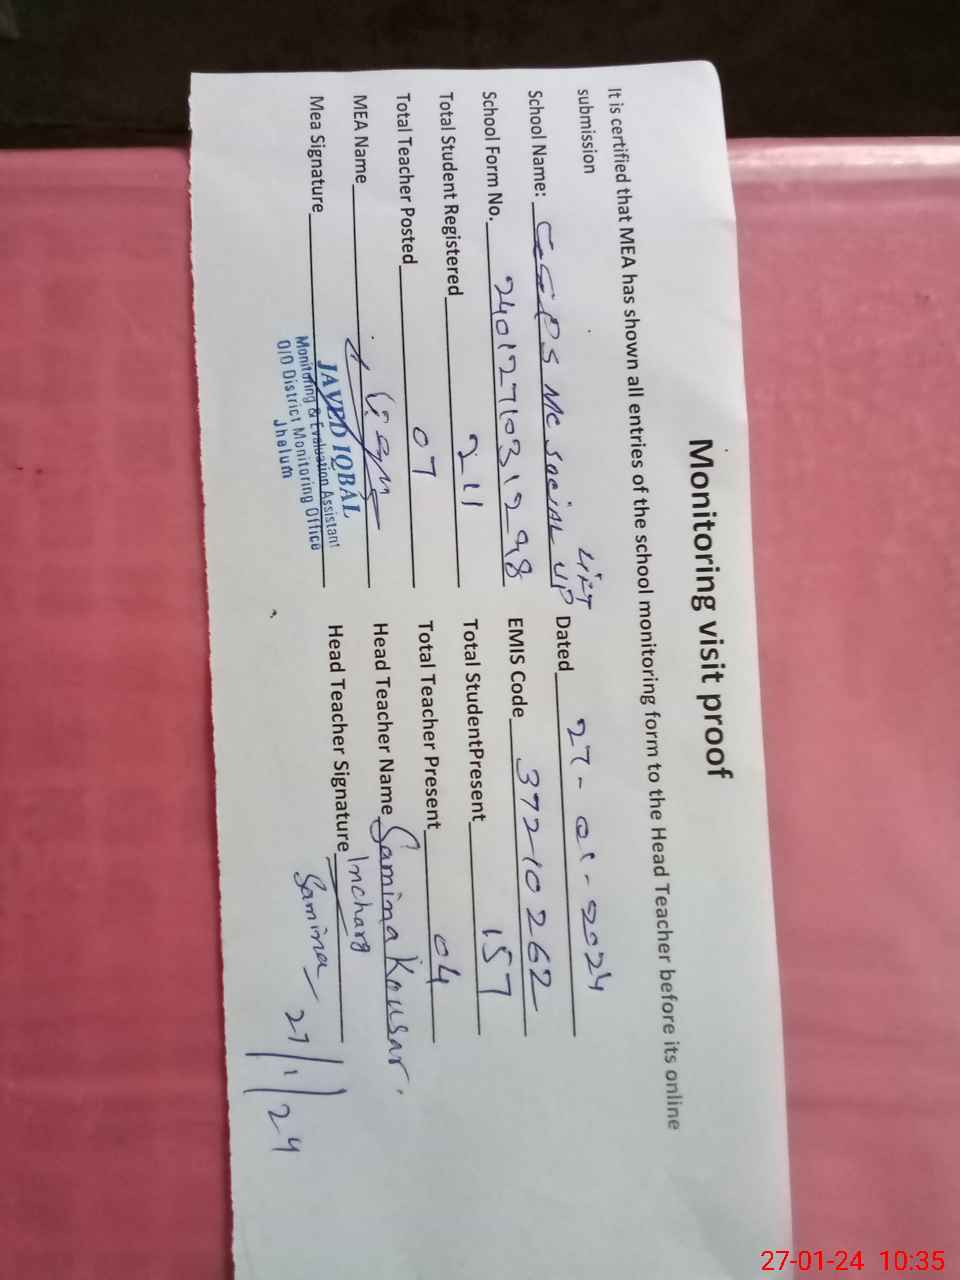 Monitoring visit proof
It is certified that MEA has shown all entries of the school monitoring form to the Head Teacher before its online
submission
School Name: GGPS MC Social UP LIFT Dated 27-01-2024
School Form No. 2401271031298 EMIS Code 37210262
Total Student Registered 211 Total StudentPresent 157
Total Teacher Posted 07 Total Teacher Present 04
MEA Name Head Teacher Name Samina Kousar.
Incharg
Mea Signature Head Teacher Signature Samina 27/1/24
JAVED IQBAL
Monitoring & Evaluation Assistant
O/O District Monitoring Office
Jhelum
27-01-24 10:35